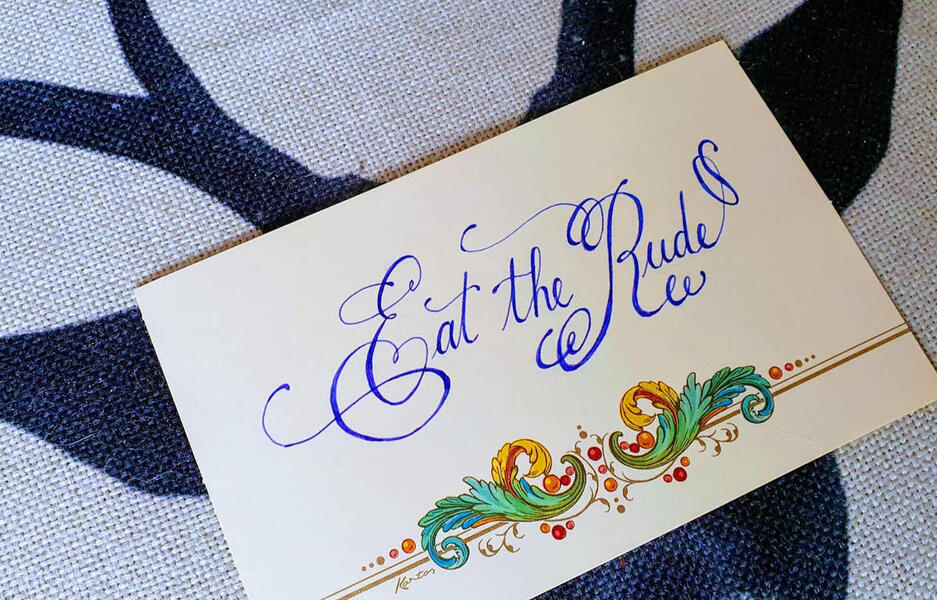 Eat the Rude
Kartos